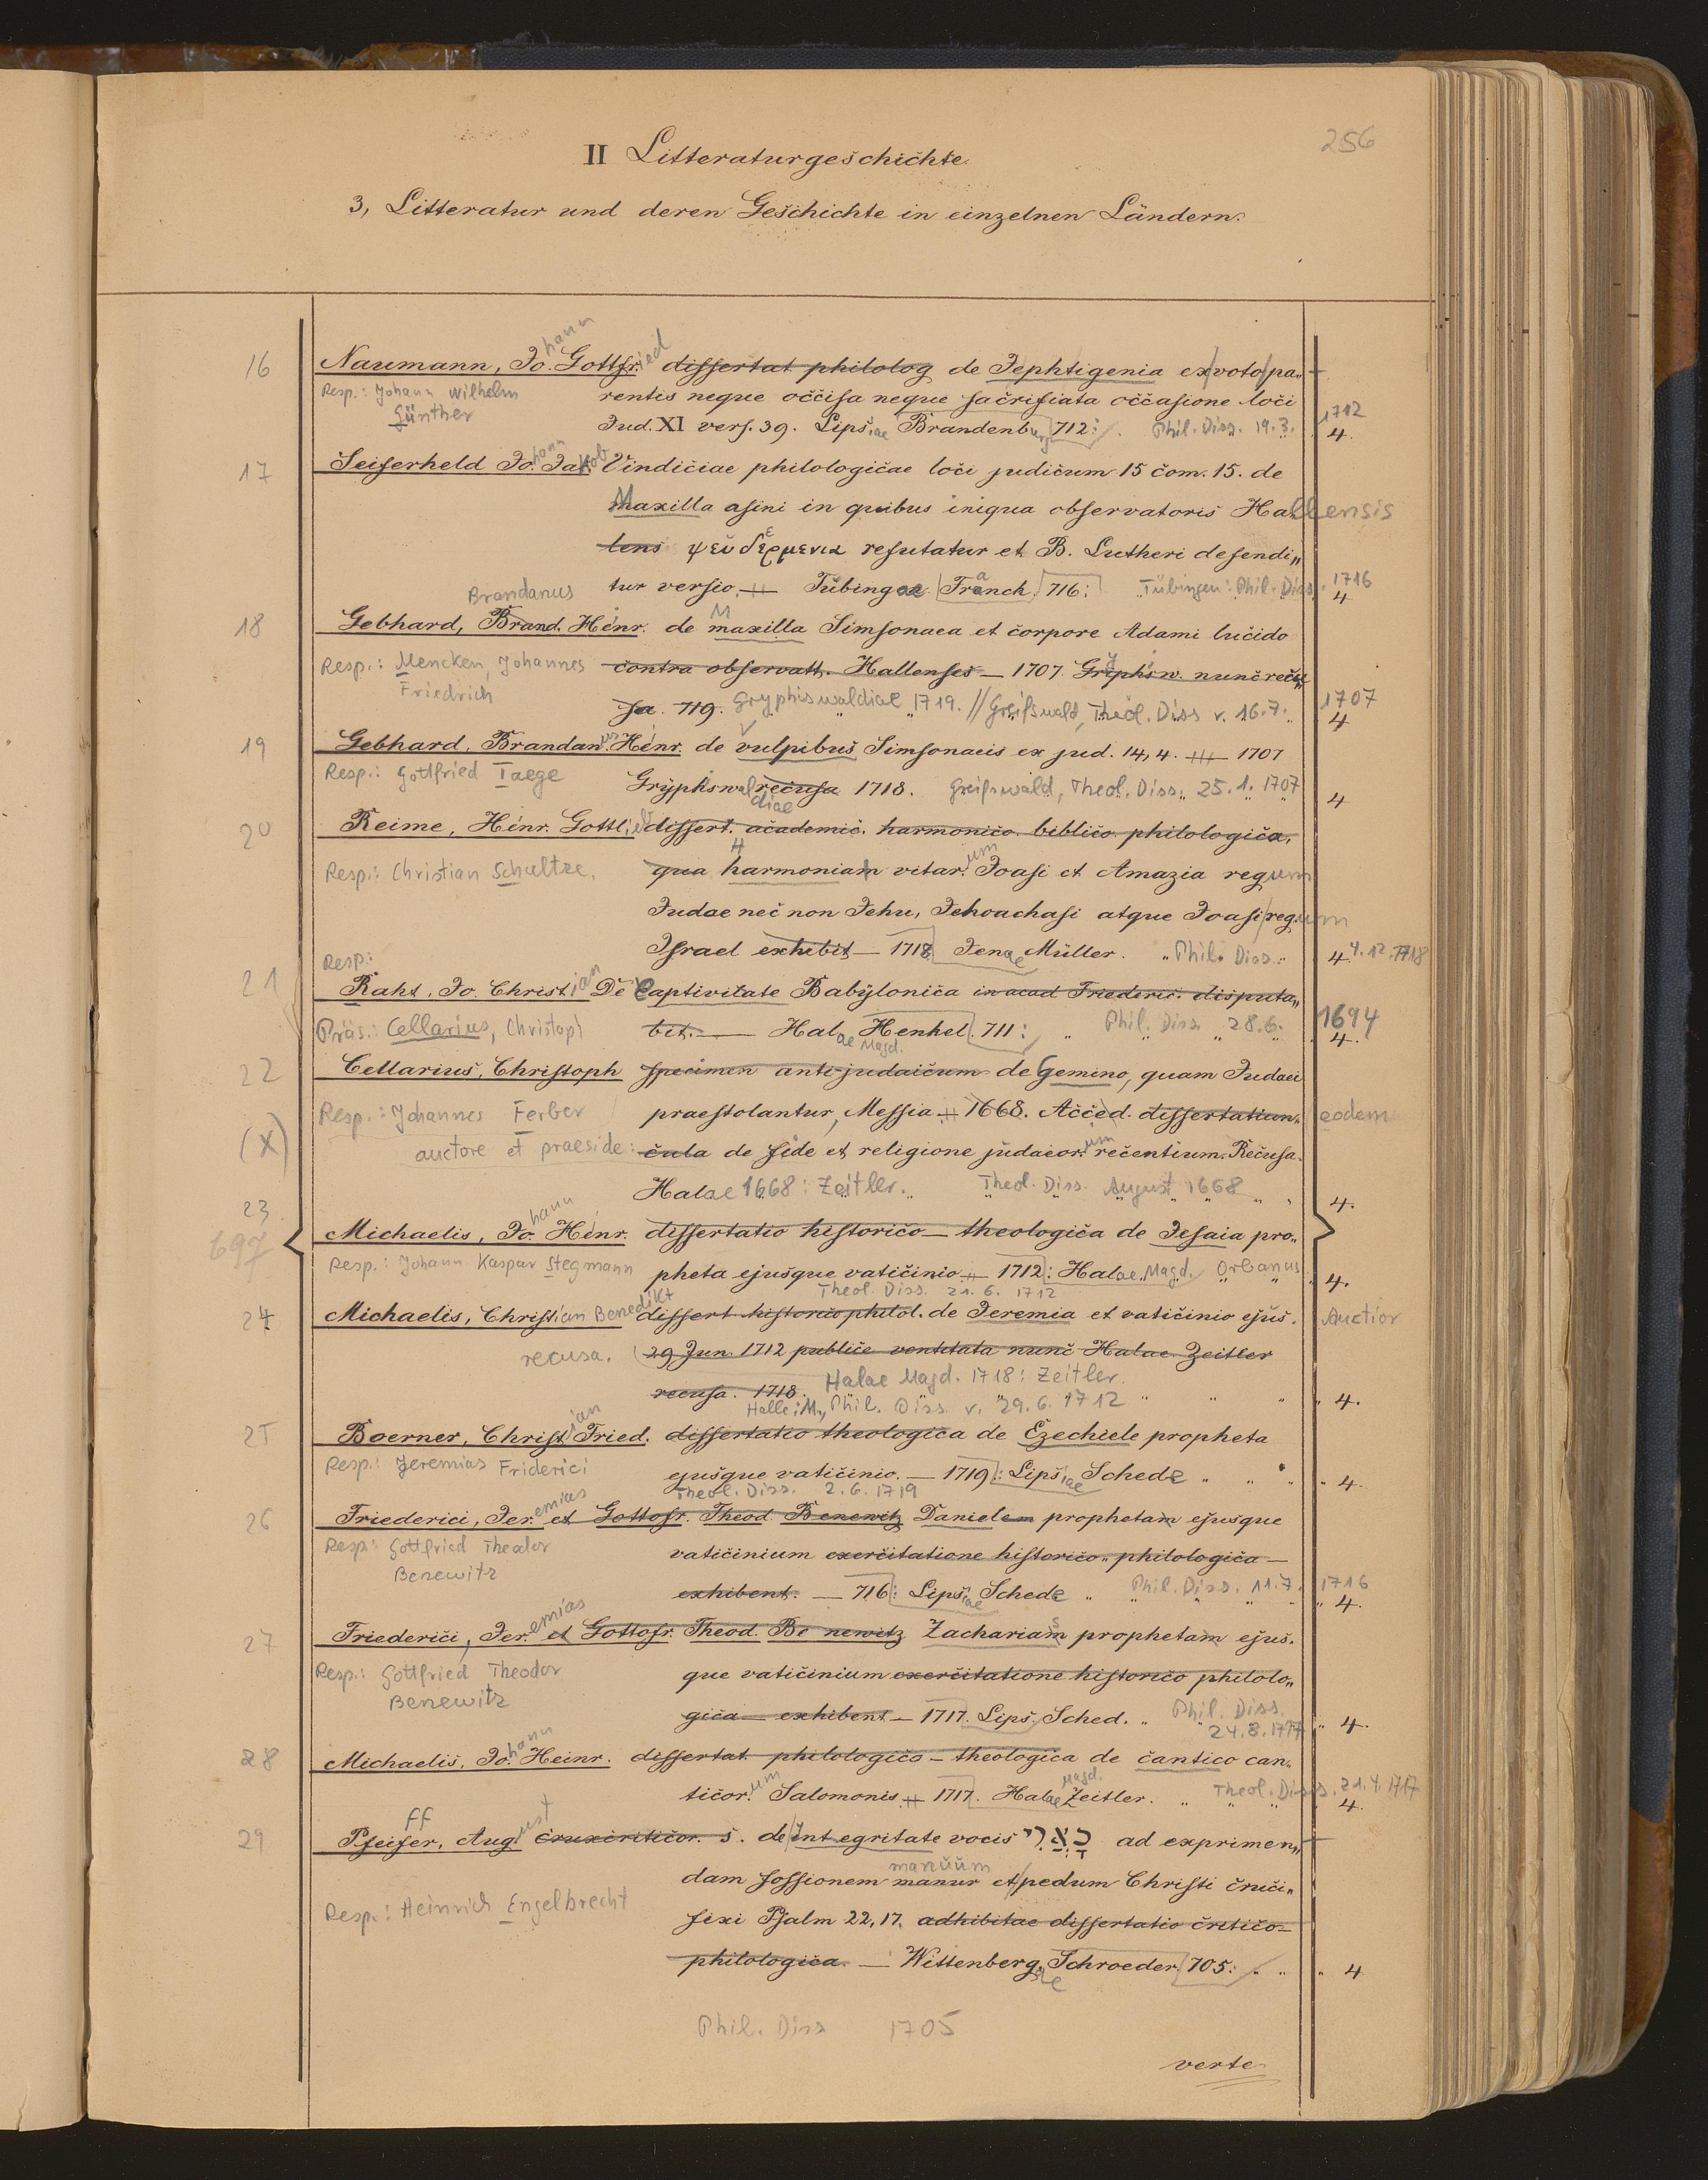 256
II Litteraturgeschichte.
3, Litteratur und deren Geschichte in einzelnen Ländern.
16 Naumann, Johann Gottfried dissertat philolog de Jephtigenia ex voto pa„
Resp.: Johann Wilhelm rentis neque occisa neque sacrifiata occasione loci
Günther Jud. XI vers. 39. Lipsiae Brandenburg 712: Phil. Diss. 19.3. 1712 4.
17 Seiferheld Johann Jakob Vindiciae philologicae loci judicum 15 com. 15. de
Maxilla asini in quibus iniqua observatoris Hallensis
lens ψευδερμενια refutatur et B. Lutheri defendi„
tur versio. — Tübingae Franck 716: Tübingen: Phil. Diss. 1716 4
Brandanus
18 Gebhard, Brand. Henr. de Maxilla Simsonaea et corpore Adami lucido
Resp.: Mencken, Johannes contra observatt. Hallenses — 1707. Gryphsw. nunc recu„
Friedrich sa. 719. Gryphiswaldiae 1719. // Greifswald, Theol. Diss v. 16.7. 1707 4
19 Gebhard, Brandanus Henr. de Vulpibus Simsonaeis ex jud. 14,4. — 1707
Resp.: Gottfried Taege Gryphiswaldiae recusa 1718. Greifswald, Theol. Diss. 25.1.1707 4
20 Reime, Henr. Gottlieb dissert. academic. harmonico biblico philologica,
Resp.: Christian Schultze. qua harmoniam vitarum Joasi et Amazia regum
Judae nec non Jehu, Jehoachasi atque Joasi regum
Israel exhibit — 1718 Jenae Müller. Phil. Diss. 4 4.12.1718
Resp:
21 Raht, Jo. Christian De Captivitate Babylonica in acad Friederic. disputa„
Präs.: Cellarius, Christoph bit. — Halae Magd. Henkel 711: Phil. Diss 28.6. 1694 4.
22 Cellarius, Christoph specimen anti-judaicum de Gemino, quam Judaei
Resp.: Johannes Ferber praestolantur, Messia — 1668. Acced. dissertatiun„ eodem
(X) auctore et praeside: cula de fide et religione judaeorum recentium. Recusa.
Halae 1668: Zeitler. Theol. Diss. August 1668 4.
23 Michaelis, Johann Henr. dissertatio historico-theologica de Jesaia pro„
697
Resp.: Johann Kaspar Stegmann pheta ejusque vaticinio — 1712: Halae Magd. Orbanus 4.
Theol. Diss. 21.6.1712
24 Michaelis, Christian Benedikt dissert historico philol. de Jeremia et vaticinio ejus. Auctior
recusa. 29 Jun. 1712 publice ventitata nunc Halae Zeitler
recusa. 1718. Halae Magd. 1718: Zeitler.
Halle: M., Phil. Diss. v. 29.6.1712 4.
25 Boerner, Christian Fried. dissertatio theologica de Ezechiele propheta
Resp.: Jeremias Friderici ejusque vaticinio. — 1719: Lipsiae Schede 4.
Theol. Diss. 2.6.1719
26 Friederici, Jeremias et Gottofr. Theod. Benewitz Danielem prophetam ejusque
Resp: Gottfried Theodor vaticinium exercitatione historico„ philologica —
Benewitz
exhibent. — 716: Lipsiae Schede Phil. Diss. 11.7. 1716 4.
27 Friederici, Jeremias et Gottofr. Theod. Benewitz Zachariam prophetam ejus„
Resp.: Gottfried Theodor que vaticinium exercitatione historico philolo„
Benewitz gica — exhibent — 1717. Lips. Sched. Phil. Diss. 24.8.1717 4.
28 Michaelis, Johann Heinr. dissertat. philologico-theologica de cantico can„
ticorum Salomonis — 1717. Halae Magd. Zeitler. Theol. Diss. 21.4.1717 4.
29 Pfeiffer, August cruxcriticor. s. de Integritate vocis כָּאֲרִי ad exprimen„
dam fossionem manuum et pedum Christi cruci„
Resp.: Heinrich Engelbrecht fixi Psalm 22,17. adhibitae dissertatio critico-
philologica. — Wittenbergae Schroeder 705: 4
Phil. Diss 1705
verte